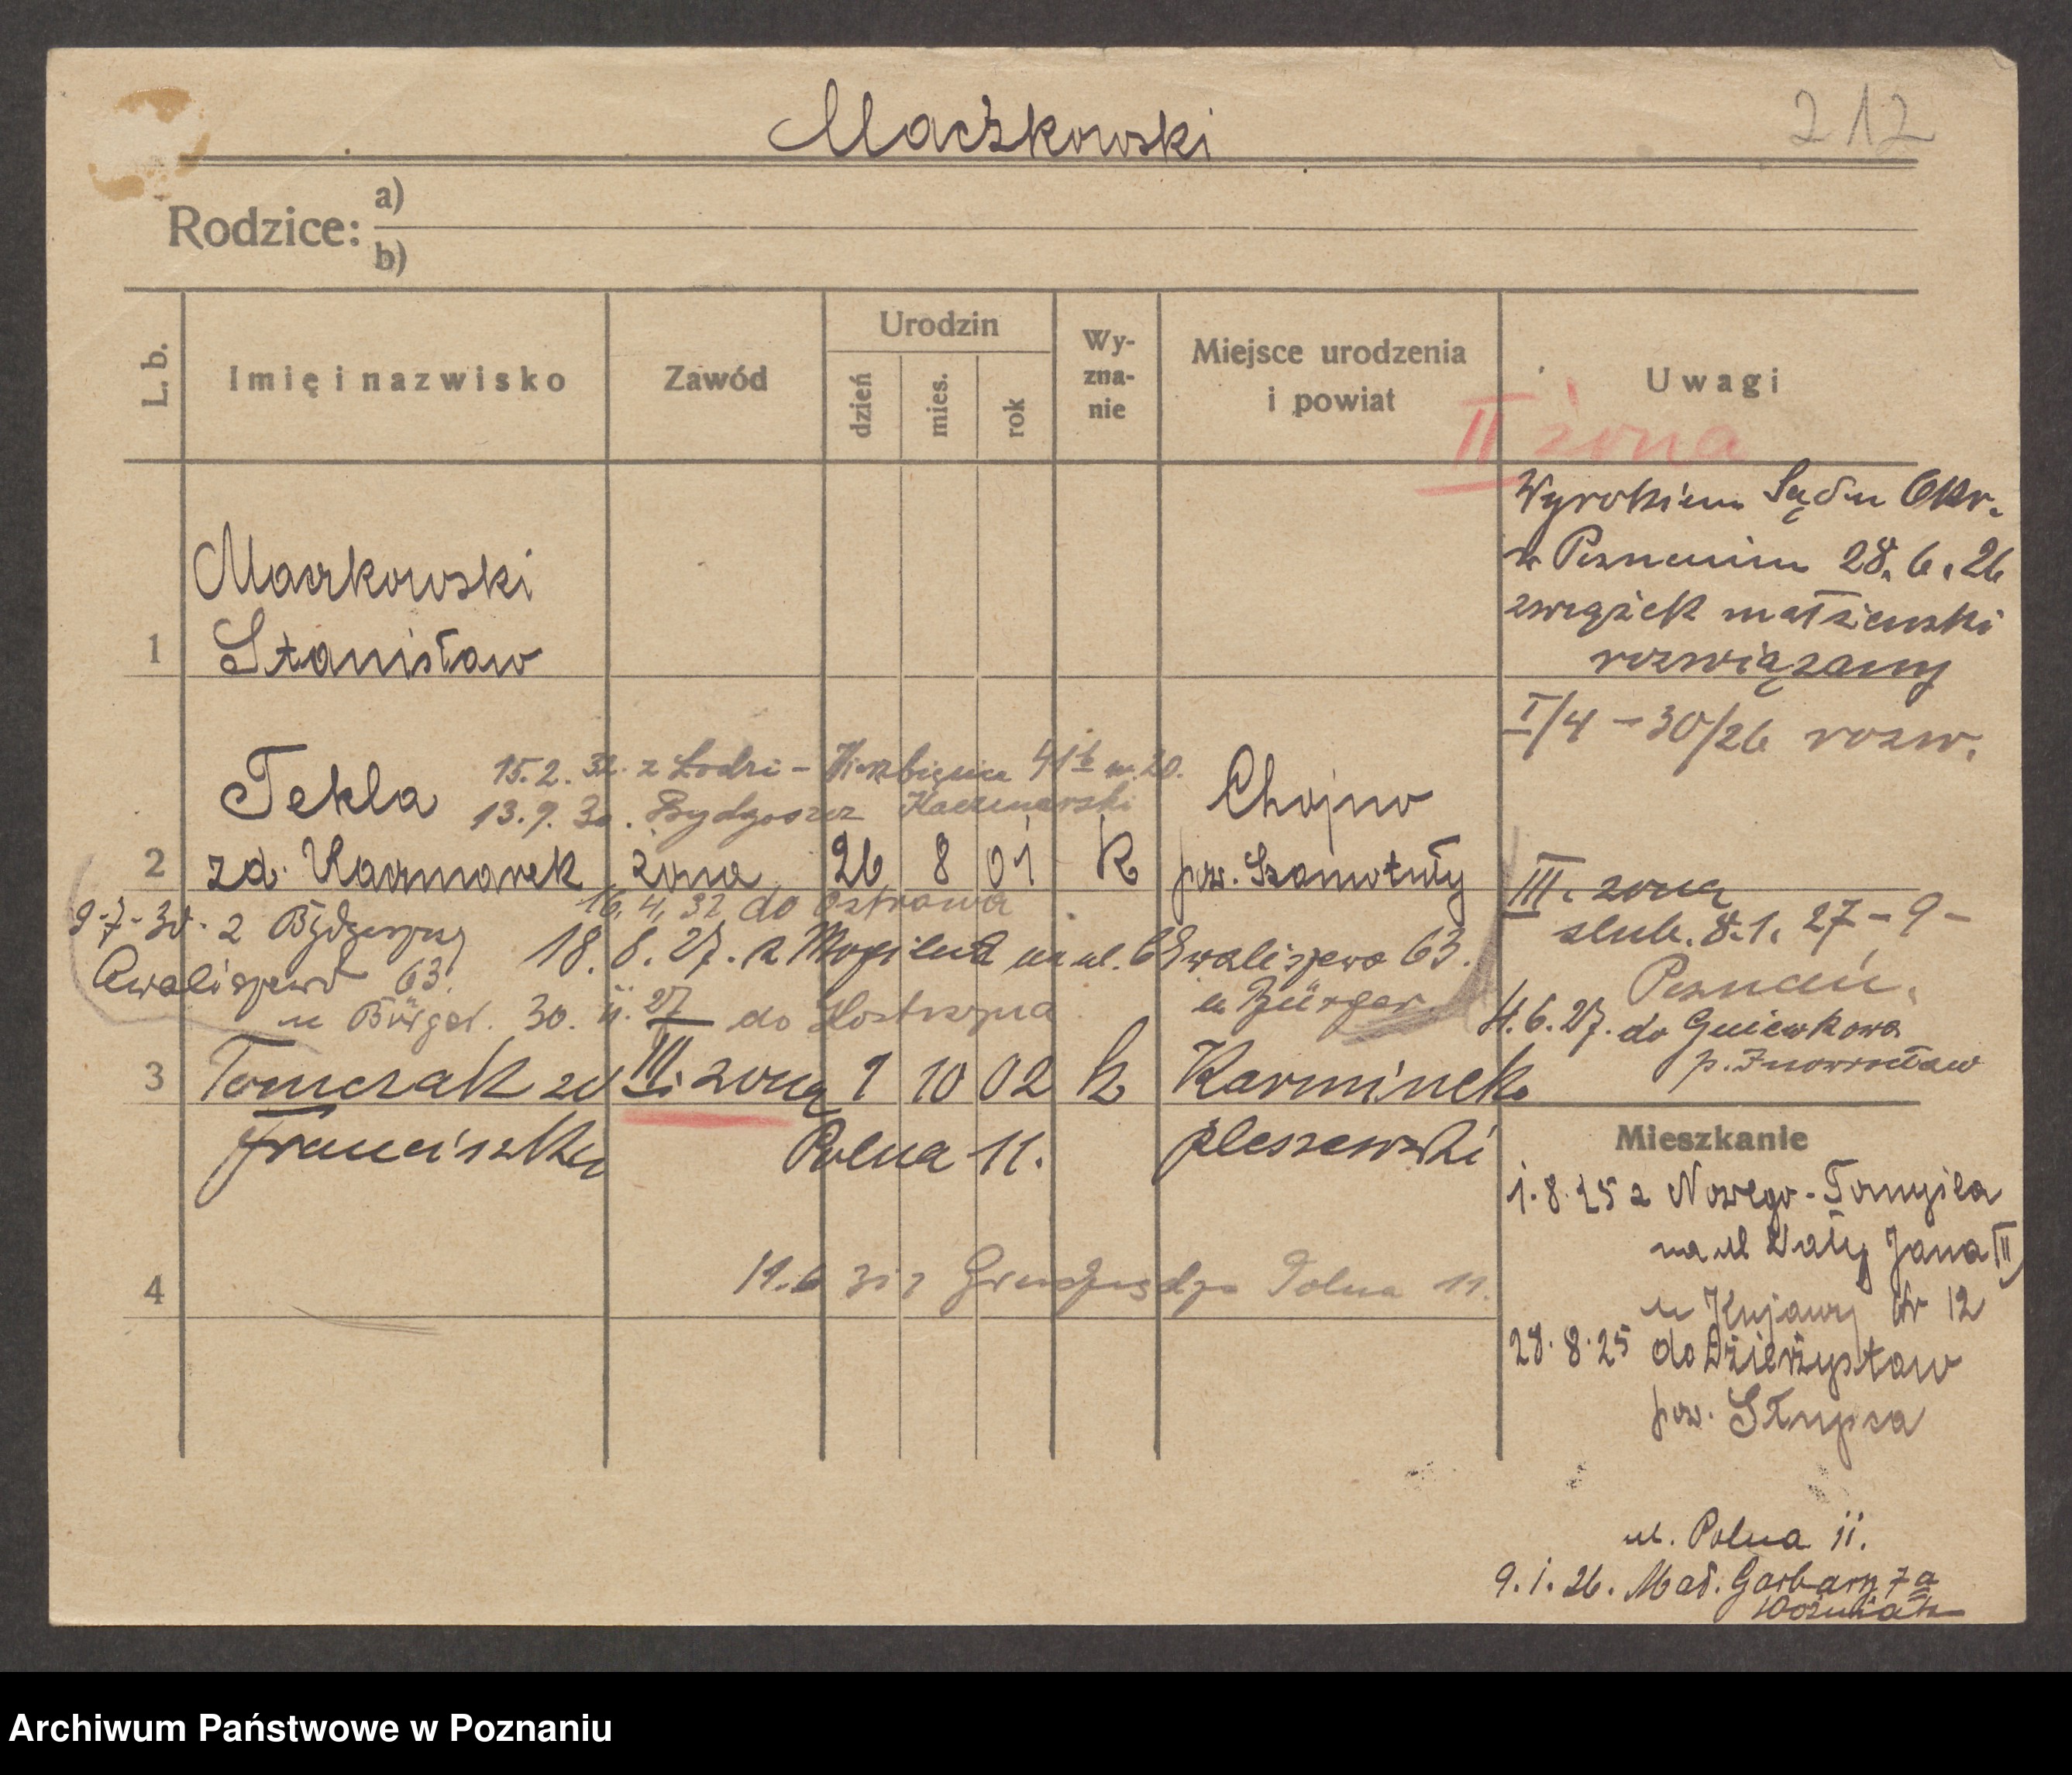 Maćkowski
212
Rodzice:
a)
b)
L. b.
Imię i nazwisko
Zawód
Urodzin
dzień
mies.
rok
Wy-
zna-
nie
Miejsce urodzenia
i powiat
Uwagi
II żona
Wyrokiem Sądu Okr.
w Poznaniu 28. 6. 26
związek małżeński
rozwiązany
1
Maćkowski
Stanisław
I/4 - 30/26 rozw.
15. 2. 32. z Łodzi - Wierzbięcice 41 b m. 20.
13. 9. 30. Bydgoszcz Kaczmarski
2
Tekla
zd. Kaczmarek
żona
26
8
01
k
Chojno
pow. Szamotuły
16. 4. 32 do Ostrowa
III. żona
ślub. 8. 1. 27 - 9 -
Poznań.
9-7-30. z Bydgoszczy
Chwaliszewo 63.
u Bürger. 30. 11. 27 do Kostrzyna
18. 8. 27. z Mogilna na ul. Chwaliszewo 63.
u Bürger.
4. 6. 27. do Gniewkowa
p. Inowrocław
3
Tomczak zd
III. żona
1
10
02
k
Karminek
Franciszka
Polna 11.
pleszewski
Mieszkanie
1. 8. 25 z Nowego-Tomyśla
na ul Wały Jana III
u Kujawy Nr 12
28. 8. 25 do Dzierżysław
pow. Słupca
4
11. 6 31 z Polna 11.
ul. Polna 11.
9. 1. 26. Mał. Garbary 7 a
Woźniak
Archiwum Państwowe w Poznaniu